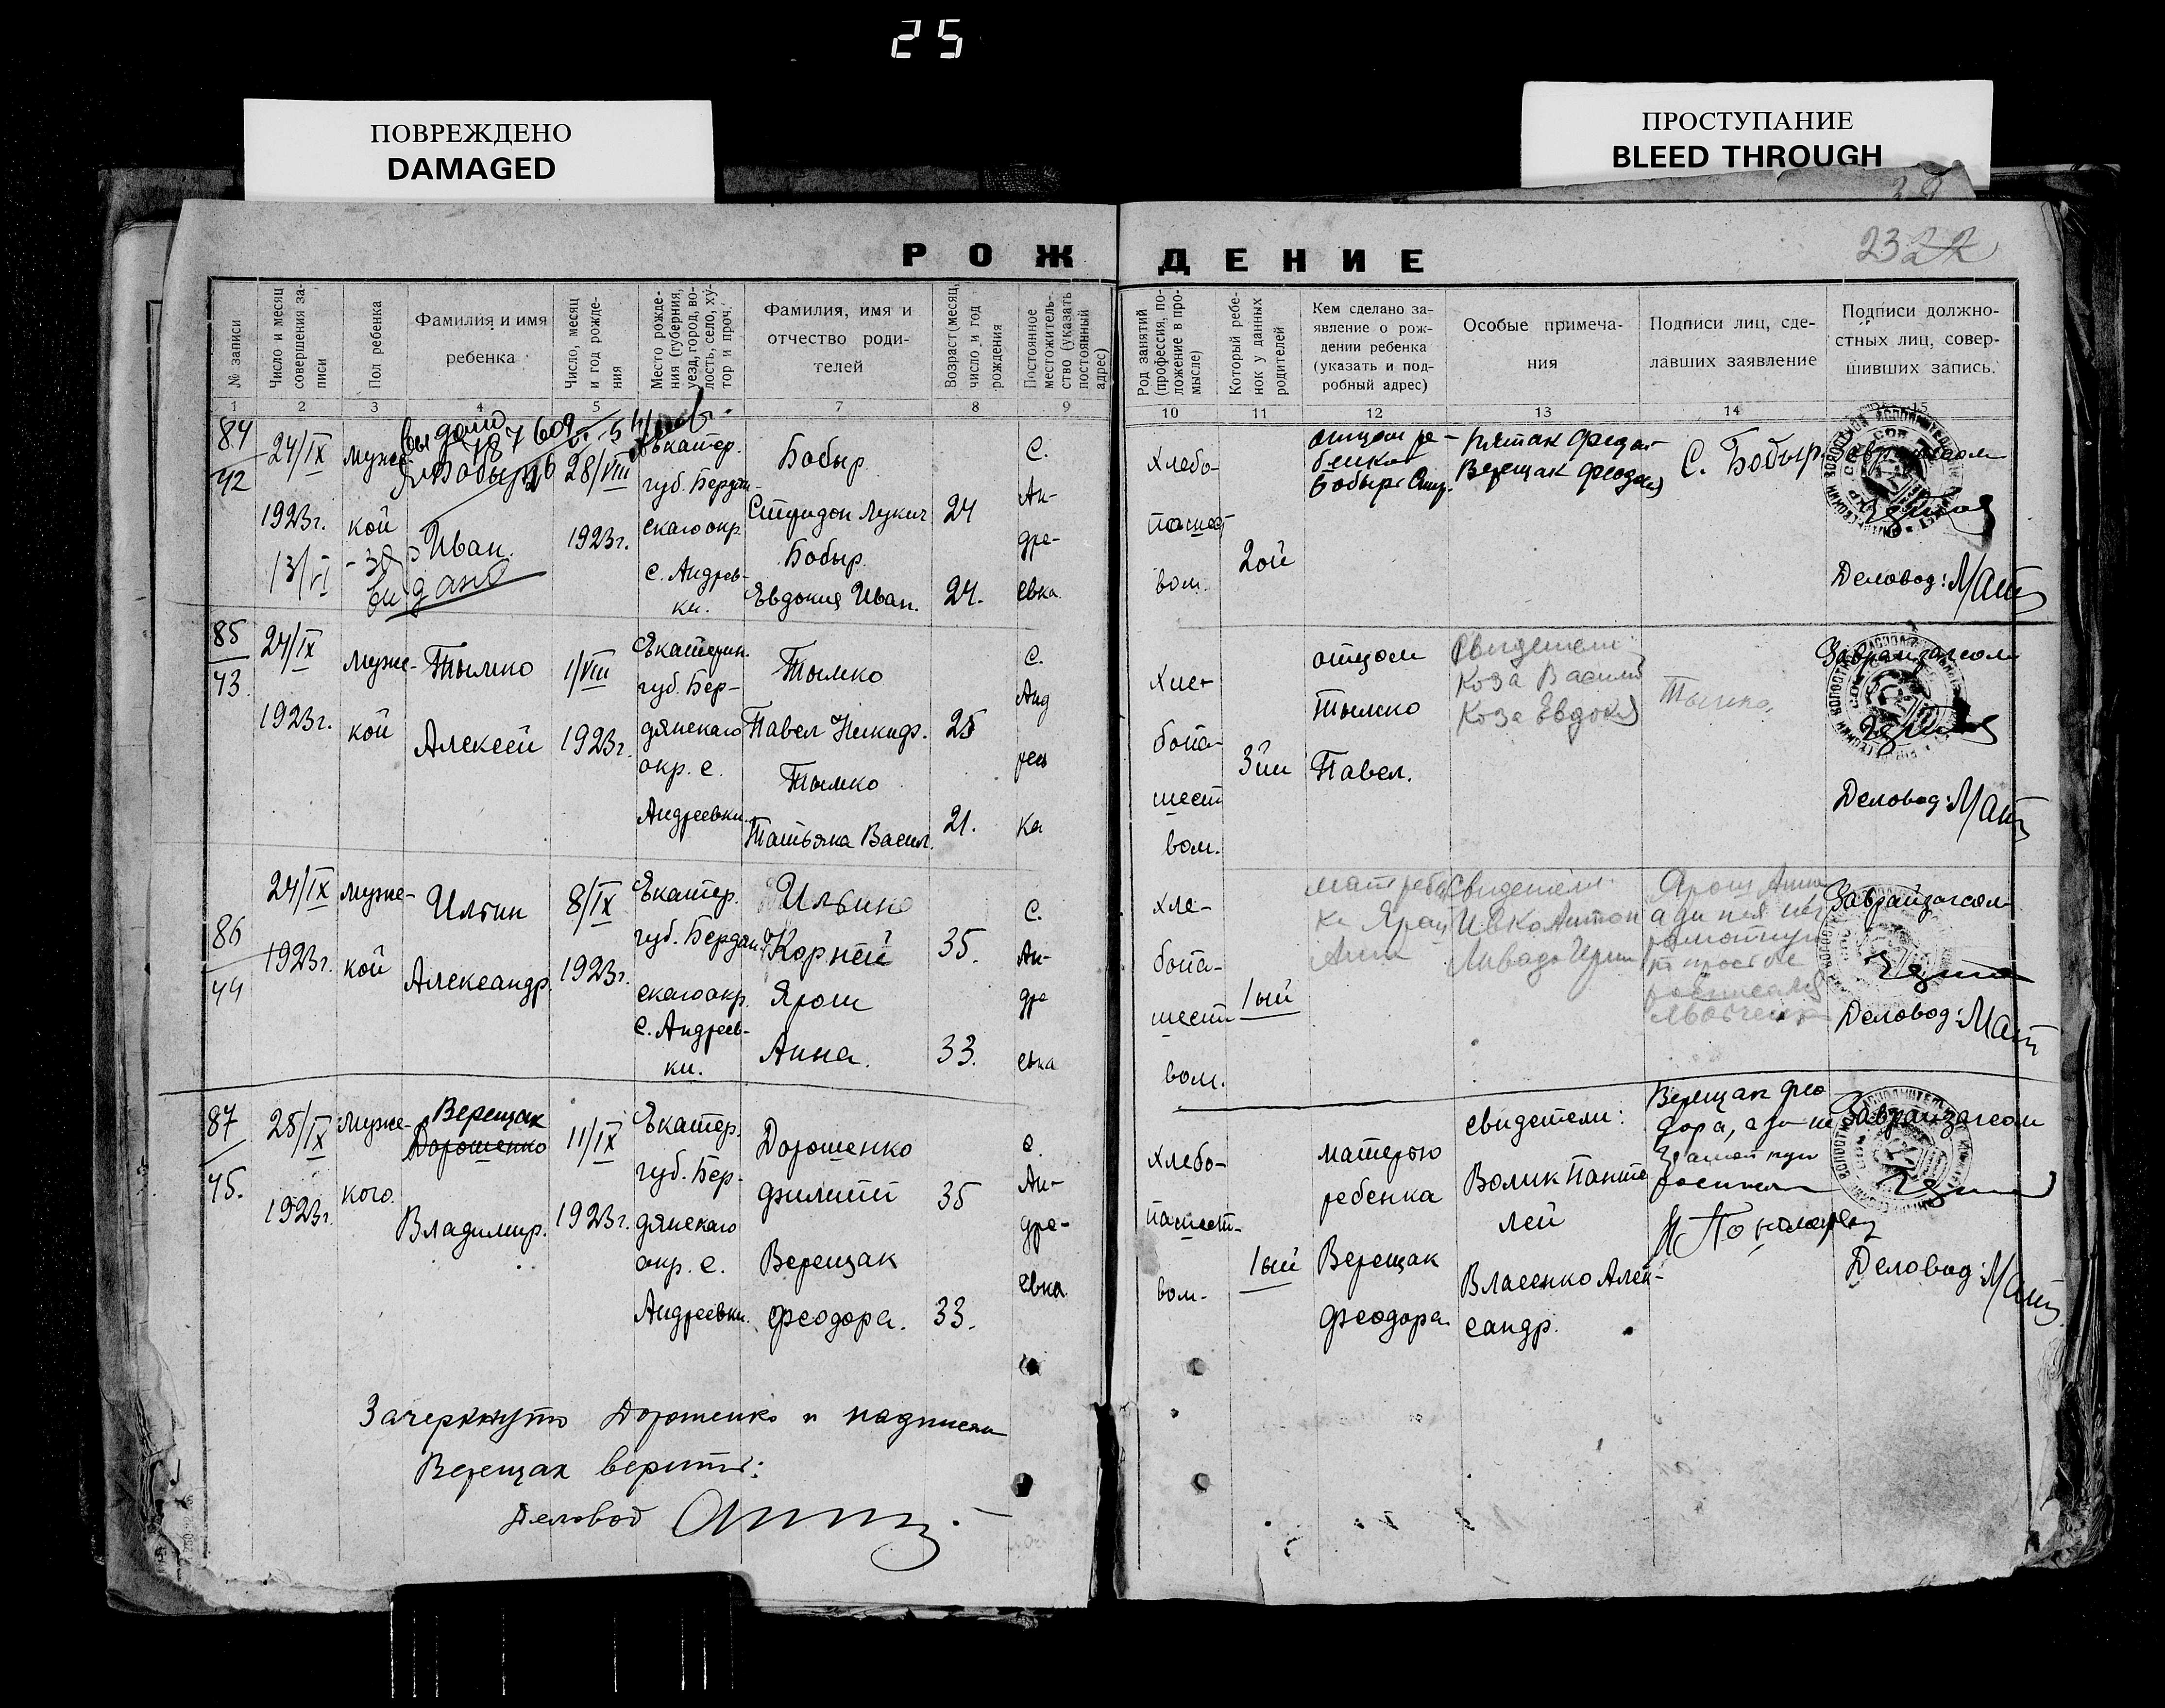 25
ПОВРЕЖДЕНО
DAMAGED
ПРОСТУПАНИЕ
BLEED THROUGH
23 22
РОЖДЕНИЕ
№ записи
Число и месяц совершения записи
Пол ребенка
Фамилия и имя
ребенка
Число, месяц и год рождения
Место рождения (губерния, уезд, город, волость, село, хутор и проч.)
Фамилия, имя и
отчество роди-
телей
Возраст (месяц, число и год рождения
Постоянное местожительство (указать постоянный адрес)
Род занятий (профессия, положение в промысле)
Который ребенок у данных родителей
Кем сделано за-
явление о рож-
дении ребенка
(указать и под-
робный адрес)
Особые примеча-
ния
Подписи лиц, сде-
лавших заявление
Подписи должно-
стных лиц, совер-
шивших запись.
1 2 3 4 5 6 7 8 9 10 11 12 13 14 15
84
42
24/IX
1923г.
13/VI
муже-
кой
выдано
Бобыр
Иван.
видано
28/VIII
1923г.
Екатер.
губ. Бердян-
скаго окр.
с. Андрев-
ки.
Бобыр
Спиридон Лукич
Бобыр
Евдокия Иван.
24
24.
с.
Ан-
дре-
евка
хлебо-
пашест
вом.
2ой
отцом ре-
бенка
Бобыр Спир.
Верещак Феодос
С. Бобыр
Завраизагсом
Деловод:
85
43
24/IX
1923г.
муже-
кой
Тымко
Алексей
1/VIII
1923г.
Екатерин.
губ. Бер-
дянскаго
окр. с.
Андреевки.
Тымко
Павел Никиф.
Тымко
Татьяна Васил.
25
21.
с.
Анд
реев
ка
хле-
бопа-
шест
вом.
3ий
отцом
Тымко
Павел.
Свидетели
Коза Василий
Коза Евдокия
Тымко
Завраизагсом
Деловод:
86
44
24/IX
1923г.
муже-
кой
Илгин
Александр.
8/IX
1923г.
Екатер.
губ. Бердян-
скаго окр.
с. Андреев-
ки.
Ильино
Корней
Ярош
Анна.
35.
33.
с.
Ан-
дре
евка
хле-
бопа-
шест
вом.
1ый
Ярош
Анна
Свидетели
Ивко Антон
Ярош Анна
Завраизагсом
Деловод:
87
45.
25/IX
1923г.
муже-
кого.
Верещак
Дорошенко
Владимир.
11/IX
1923г.
Екатер.
губ. Бер-
дянскаго
окр. с.
Андреевки.
Дорошенко
филипп
Верещак
феодора.
35
33.
с.
Ан-
дре-
евка
хлебо-
пашест-
вом.
1ый
матерью
ребенка
Верещак
феодора.
свидетели:
Волик Панте
лей
Власенко Алек-
сандр.
Верещак фео
дора, а за не
грамотную
Завраизагсом
Деловод:
Зачеркнуто Дорошенко и надписан
Верещак верить:
Деловод